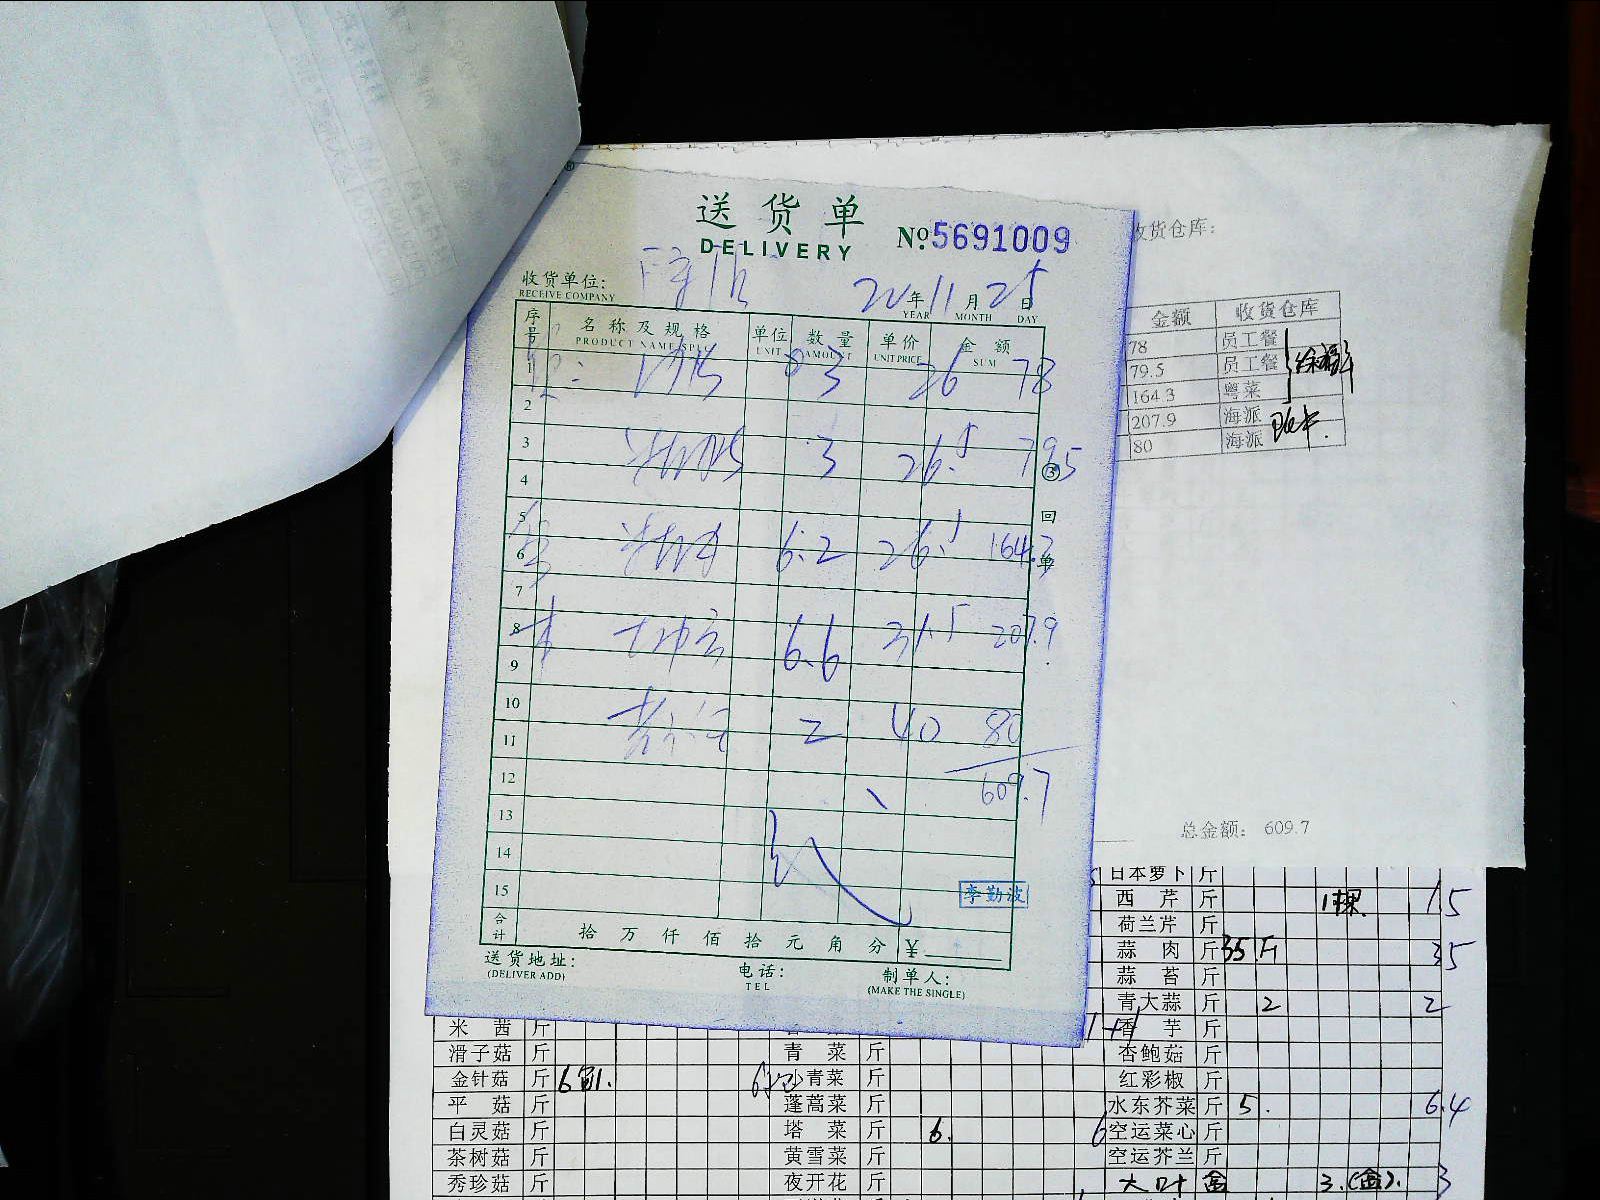 送货单
DELIVERY
№ 5691009
收货单位:
RECEIVE COMPANY
22年11月25日
YEAR MONTH DAY
序号 名称及规格 单位 数量 单价 金额
PRODUCT NAME/SPEC UNIT AMOUNT UNIT PRICE SUM
1 3 26 78
2
3 3 26.5 79.5
4
5
6 6.2 26.5 164.3
7
8 6.6 31.5 207.9
9
10
11 2 40 80
12 609.7
13
14
15
李勤波
③回单
合计 拾万仟佰拾元角分 ¥
送货地址:
(DELIVER ADD)
电话:
TEL
制单人:
(MAKE THE SINGLE)
收货仓库:
金额 收货仓库
78 员工餐
79.5 员工餐
164.3 粤菜
207.9 海派
80 海派
总金额: 609.7
日本萝卜 斤
西芹 斤 1棵. 15
荷兰芹 斤
蒜肉 斤 35斤 35
蒜苔 斤
青大蒜 斤 2 2
米茜 斤 香芋 斤
滑子菇 斤 青菜 斤 杏鲍菇 斤
金针菇 斤 6包. 6包 小青菜 斤 红彩椒 斤
平菇 斤 蓬蒿菜 斤 水东芥菜 斤 5. 6.4
白灵菇 斤 塔菜 斤 6. 6 空运菜心 斤
茶树菇 斤 黄雪菜 斤 空运芥兰 斤
秀珍菇 斤 夜开花 斤 大叶 盒 3.(盒). 3